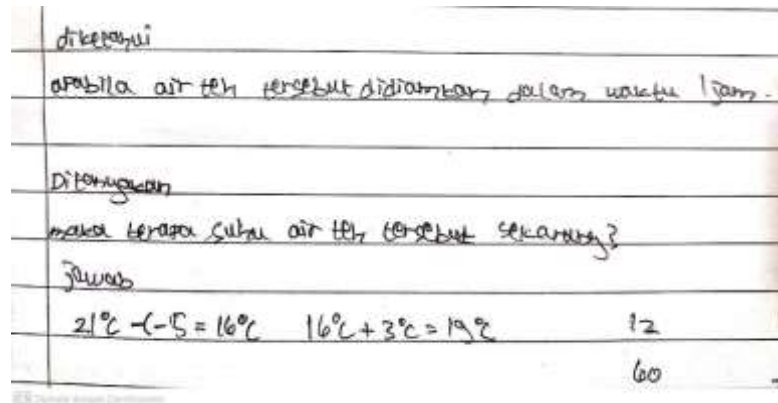 diketahui
apabila air teh tersebut didiamkan dalam waktu 1 jam.
Ditanyakan
maka berapa suhu air teh tersebut sekarang?
Jawab
21°C -(-5 = 16°C 16°C + 3°C = 19°C 12
60